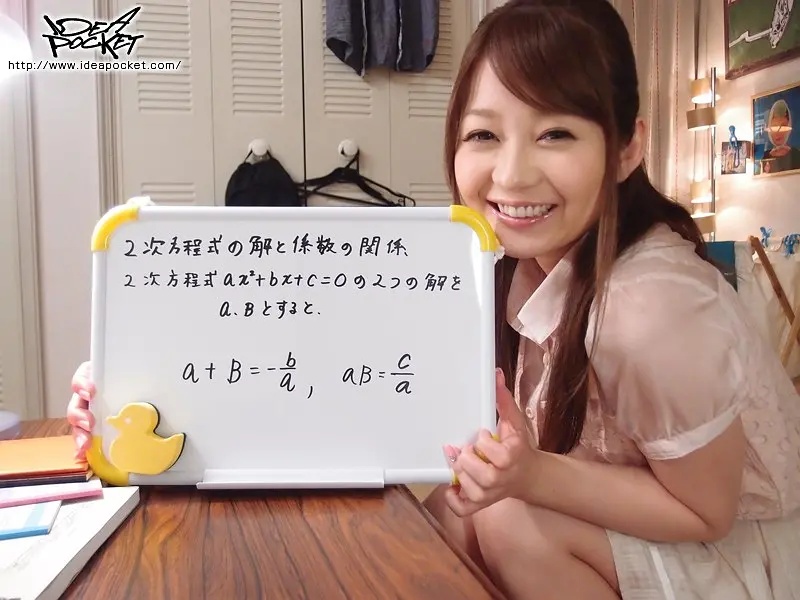 IDEA
POCKET
http://www.ideapocket.com/
2次方程式の解と係数の関係
2次方程式ax²+bx+c=0の2つの解を
a、Bとすると、
a+B=-b/a, aB=c/a